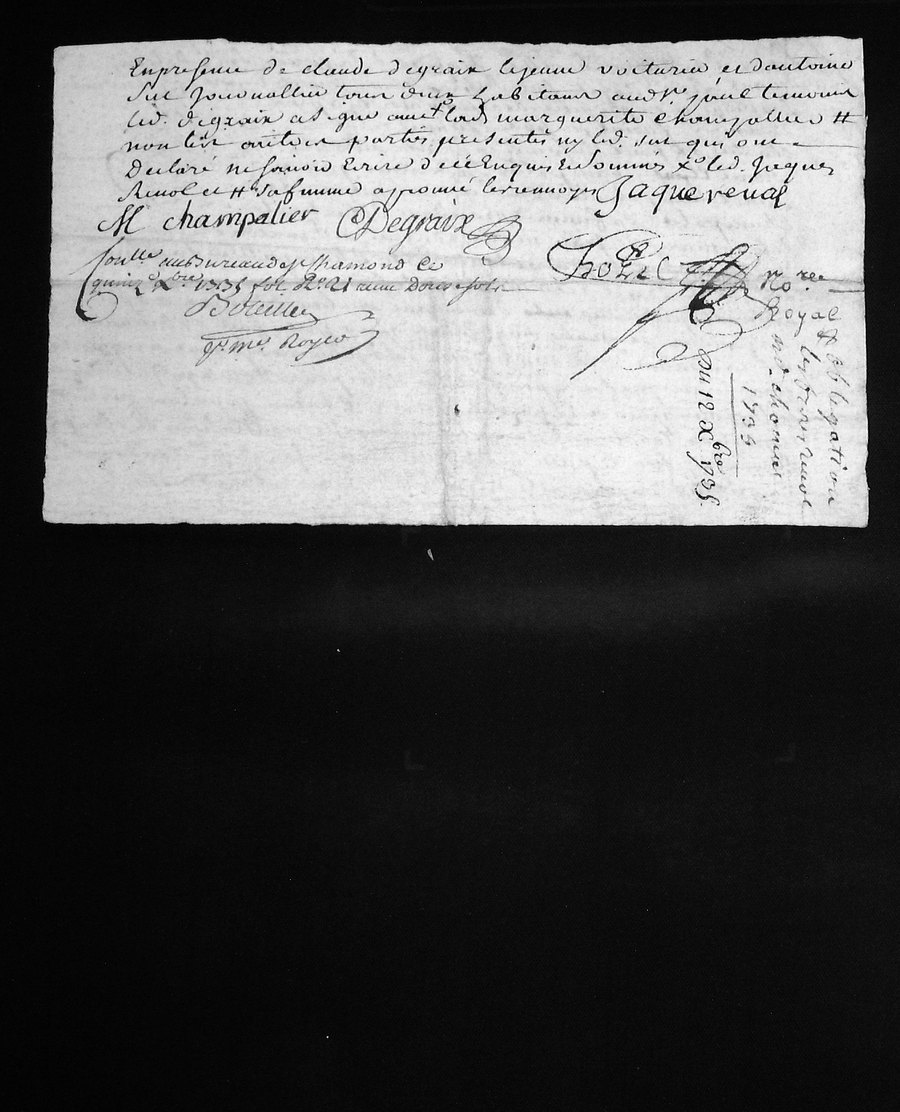 En presence de claude degraix lejeune voiturier et dantoine
Sue Journallier tous deux habitans aud. St. paul temoins
led. degraix a signé avec lad. marguerite champallier #
non les autres parties presentes ny led. sue qui ont
Declaré ne scavoir Ecrire de ce Enquis et Sommes led. Jaques
Renol et # sa femme approuvé les renvoyes Jaque renol
M champalier Degraix
Conlle au Bureau de St. chamond le
quinze xbre 1735 fol. 21 reçu Douze sols
Royer
No.re
Royal
Du 12 Xbre 1735
1735
obligation
les renol
chomel